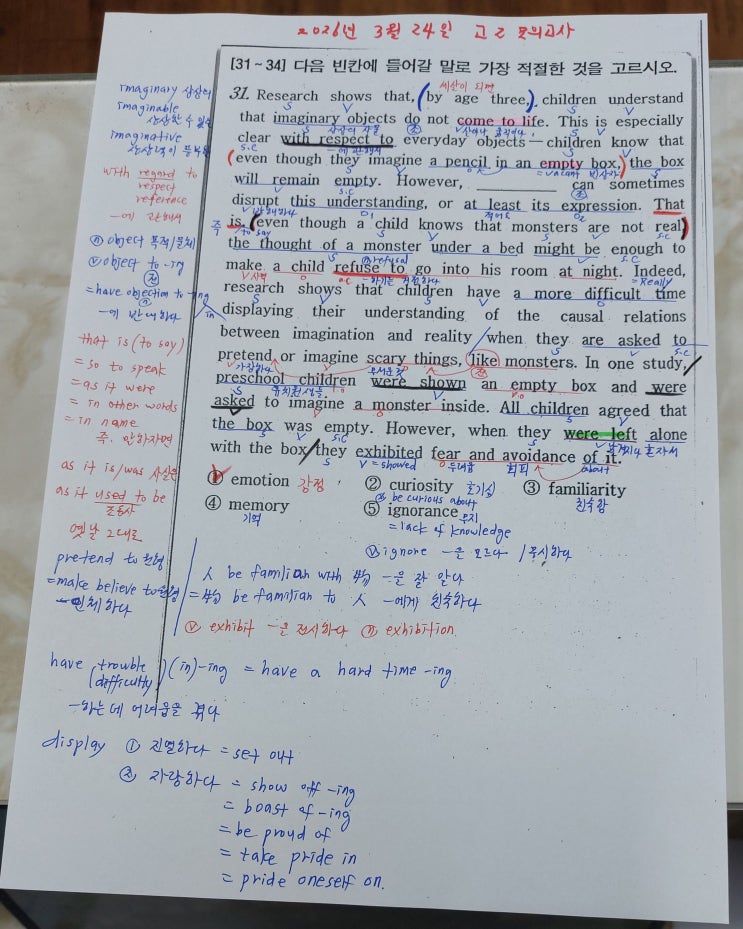 2026년 3월 24일 고2 모의고사
[31~34] 다음 빈칸에 들어갈 말로 가장 적절한 것을 고르시오.
세살이 되면
31. Research shows that, (by age three,) children understand
that imaginary objects do not come to life. This is especially
상상의 사물
clear with respect to everyday objects — children know that
-에 관해서
(even though they imagine a pencil in an empty box,) the box
= vacant
will remain empty. However, __________ can sometimes
disrupt this understanding, or at least its expression. That
방해하다
적어도
즉 is, (even though a child knows that monsters are not real)
to say
the thought of a monster under a bed might be enough to
ⓝ refusal
make a child refuse to go into his room at night. Indeed,
= Really
research shows that children have a more difficult time
in
displaying their understanding of the causal relations
between imagination and reality when they are asked to
pretend or imagine scary things, like monsters. In one study,
가장하다
무서운것
전
preschool children were shown an empty box and were
유치원생들
asked to imagine a monster inside. All children agreed that
the box was empty. However, when they were left alone
with the box, they exhibited fear and avoidance of it.
V = showed
두려움
회피
about
① emotion 감정
② curiosity 호기심
③ familiarity
친숙함
ⓐ be curious about
④ memory
기억
⑤ ignorance 무지
= lack of knowledge
ⓥ ignore -을 모르다 / 무시하다
imaginary 상상의
imaginable
상상할 수 있는
imaginative
상상력이 풍부한
with regard to
respect
reference
-에 관해서
ⓝ object 목적/물체
ⓥ object to -ing
전
= have objection to -ing
ⓝ
-에 반대하다
that is (to say)
= so to speak
= as it were
= in other words
= in name
즉. 말하자면
as it is/was 사실은
as it used to be
조동사
옛날 그대로
pretend to 원형
= make believe to 원형
-인체 하다
人 be familiar with 物 -을 잘 알다
= 物 be familiar to 人 -에게 친숙하다
ⓥ exhibit -을 전시하다 ⓝ exhibition.
have (trouble
difficulty) (in) -ing = have a hard time -ing
-하는데 어려움을 겪다
display ① 진열하다 = set out
② 자랑하다 = show off -ing
= boast of -ing
= be proud of
= take pride in
= pride oneself on.